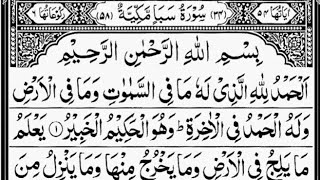 اٰیَاتُهَا ۵۴ (۳۴) سُوْرَةُ سَبَاٍ مَّكِّيَّةٌ (۵۸) رُكُوْعَاتُهَا ۶
بِسْمِ اللّٰهِ الرَّحْمٰنِ الرَّحِيْمِ
اَلْحَمْدُ لِلّٰهِ الَّذِیْ لَهٗ مَا فِی السَّمٰوٰتِ وَمَا فِی الْاَرْضِ
وَلَهُ الْحَمْدُ فِی الْاٰخِرَةِ ؕ وَهُوَ الْحَكِیْمُ الْخَبِیْرُ ۱ یَعْلَمُ
مَا یَلِجُ فِی الْاَرْضِ وَمَا یَخْرُجُ مِنْهَا وَمَا یَنْزِلُ مِنَ